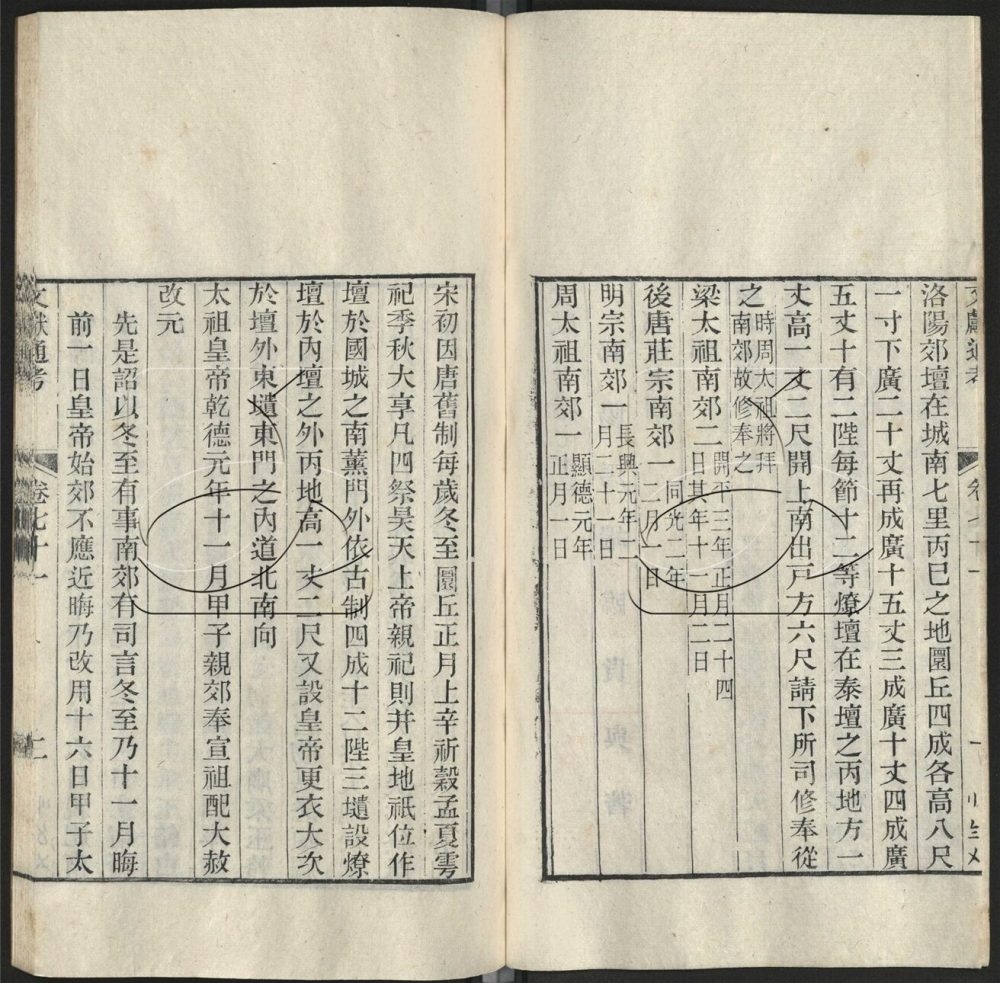 文獻通考
洛陽郊壇在城南七里丙巳之地圜丘四成各高八尺
一寸下廣二十丈再成廣十五丈三成廣十丈四成廣
五丈十有二陛每節十二等燎壇在泰壇之丙地方一
丈高一丈二尺開上南出戸方六尺請下所司修奉從
之時周太祖將拜
南郊故修奉之
梁太祖南郊二開平三年正月二十四
日其年十一月二日
後唐莊宗南郊一同光二年
二月一日
明宗南郊一長興元年二
月二十一日
周太祖南郊一顯德元年
正月一日
宋初因唐舊制每歲冬至圜丘正月上辛祈穀孟夏雩
祀季秋大享凡四祭昊天上帝親祀則并皇地祇位作
壇於國城之南薰門外依古制四成十二陛三壝設燎
壇於內壇之外丙地高一丈二尺又設皇帝更衣大次
於壇外東壝東門之內道北南向
太祖皇帝乾德元年十一月甲子親郊奉宣祖配大赦
改元
先是詔以冬至有事南郊有司言冬至乃十一月晦
前一日皇帝始郊不應近晦乃改用十六日甲子太
文獻通考
卷七十一
二